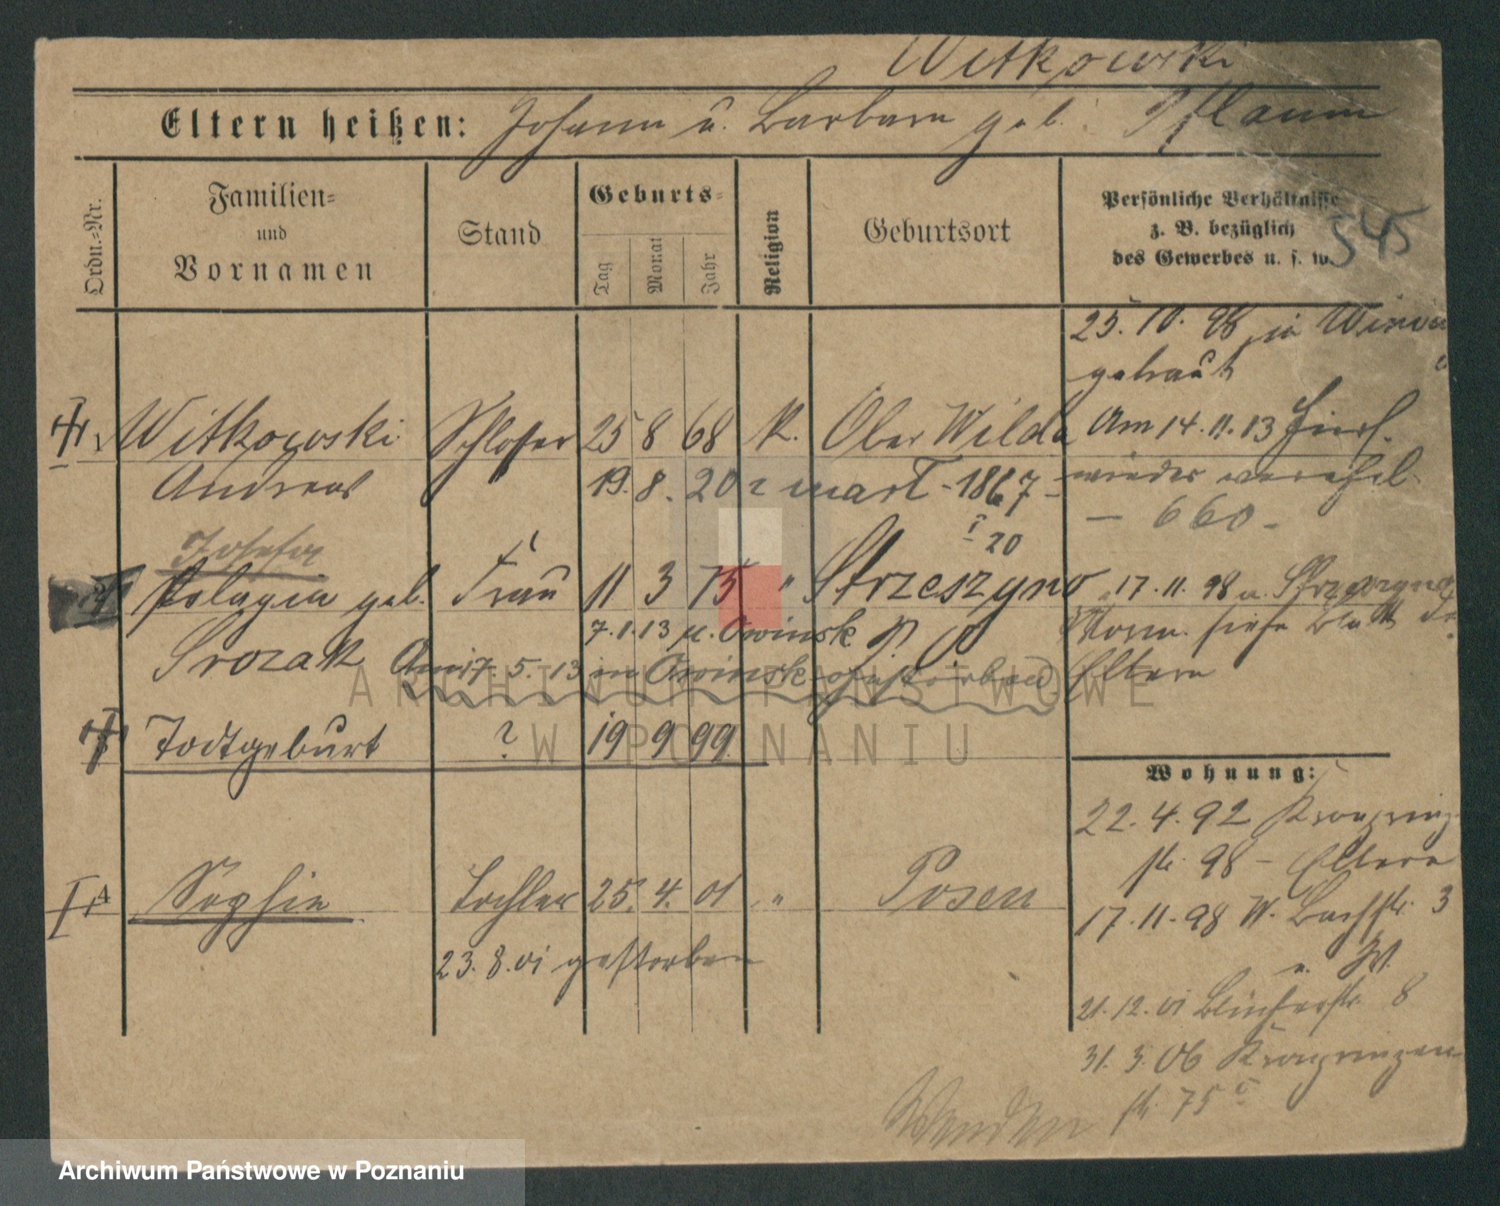 Witkowski
Eltern heißen: Johann u. Barbara geb. Pflaum
Ordn.-Nr.
Familien-
und
Vornamen
Stand
Geburts-
Tag
Monat
Jahr
Religion
Geburtsort
Persönliche Verhältnisse
z. B. bezüglich
des Gewerbes u. s. w.
545
25. 10. 98 in
getraut
Witkowski Schlosser 25 8 68 K. Ober Wilda
Am 14. 11. 13 hier
Andreas 19. 8. 20
1867
wieder verehel.
- 660 -
20
Josefa
Pelagia geb. Frau 11 3 75 " Strzeszyno
17. 11. 98 u.
Srozak
7. 1. 13 n. Owinsk
siehe Blatt
Am 17. 5. 13 in Owinsk gestorben
Eltern
Todtgeburt ? 19 9 99
Wohnung:
22. 4. 92 Kronprinz
str. 98 - Eltern
Sophie Tochter 25. 4. 01 " Posen
17. 11. 98 W. Bachstr. 3
23. 8. 01 gestorben
u. W.
21. 12. 01 Blücherstr. 8
31. 3. 06 Kronprinzen
str. 75
Wenden
ARCHIWUM PAŃSTWOWE
W POZNANIU
Archiwum Państwowe w Poznaniu